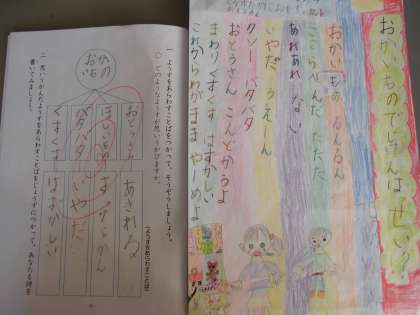 おかいものでじけんはっせい!!
おかいもの るんるん
ここらへんだ たたた
あれあれ ない
いやだ うえーん
クソー バタバタ
おとうさん こんどかうよ
まわりくすくす はずかしい
これからわがまま やーめよ
一 ようすをあらわすことばをつかって、そうぞうしましょう。
○ どのようなようすが思いうかびますか。
(ようすをあらわすことば)
おかいもの
おとうさん あきれる
ほしいもの
バタバタ いやだ
くすくす はずかしい
二 思いうかんだようすをあらわすことばをじょうずにつかって、あなたも詩を
書いてみましょう。